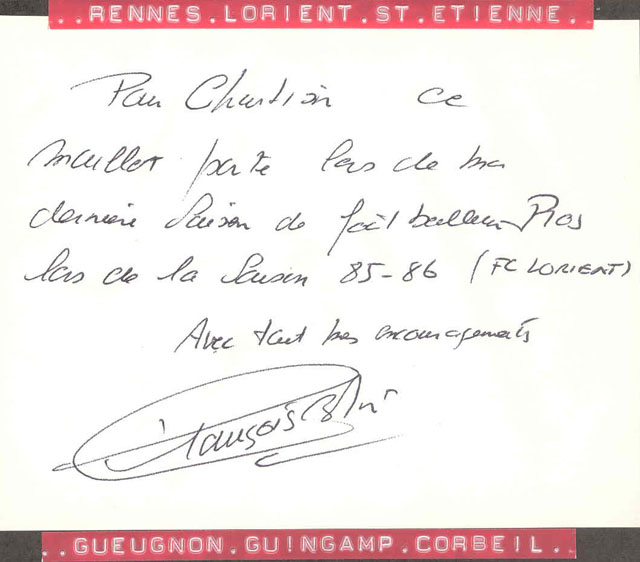 ..RENNES.LORIENT.ST.ETIENNE..
Pour Christian ce
maillot porté lors de ma
dernière saison de footballeur Pros
lors de la saison 85-86 (FC LORIENT)
Avec tout mes encouragements
François
..GUEUGNON.GUINGAMP.CORBEIL..